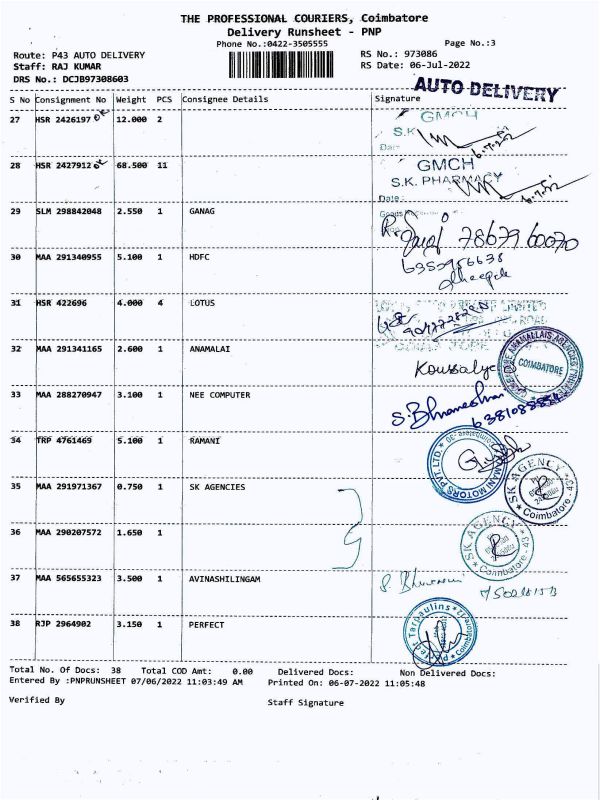 THE PROFESSIONAL COURIERS, Coimbatore
Delivery Runsheet - PNP
Phone No.:0422-3505555
Page No.:3
Route: P43 AUTO DELIVERY
RS No.: 973086
Staff: RAJ KUMAR
RS Date: 06-Jul-2022
DRS No.: DCJB97308603
AUTO DELIVERY
S No Consignment No Weight PCS Consignee Details Signature
27 HSR 2426197 12.000 2
GMCH
S.K
6.7.22
28 HSR 2427912 68.500 11
GMCH
S.K. PHARMACY
Date
6.7.22
29 SLM 298842048 2.550 1 GANAG
7867960070
30 MAA 291340955 5.100 1 HDFC
31 HSR 422696 4.000 4 LOTUS
32 MAA 291341165 2.600 1 ANAMALAI
COIMBATORE
33 MAA 288270947 3.100 1 NEE COMPUTER
34 TRP 4761469 5.100 1 RAMANI
RAMANI MOTORS PVT LTD.
35 MAA 291971367 0.750 1 SK AGENCIES
SK AGENCY
Coimbatore-43
36 MAA 290207572 1.650 1
SK AGENCY
Coimbatore-43
37 MAA 565655323 3.500 1 AVINASHILINGAM
38 RJP 2964902 3.150 1 PERFECT
Perfect Tarpaulins
Total No. Of Docs: 38 Total COD Amt: 0.00 Delivered Docs: Non Delivered Docs:
Entered By :PNPRUNSHEET 07/06/2022 11:03:49 AM Printed On: 06-07-2022 11:05:48
Verified By
Staff Signature